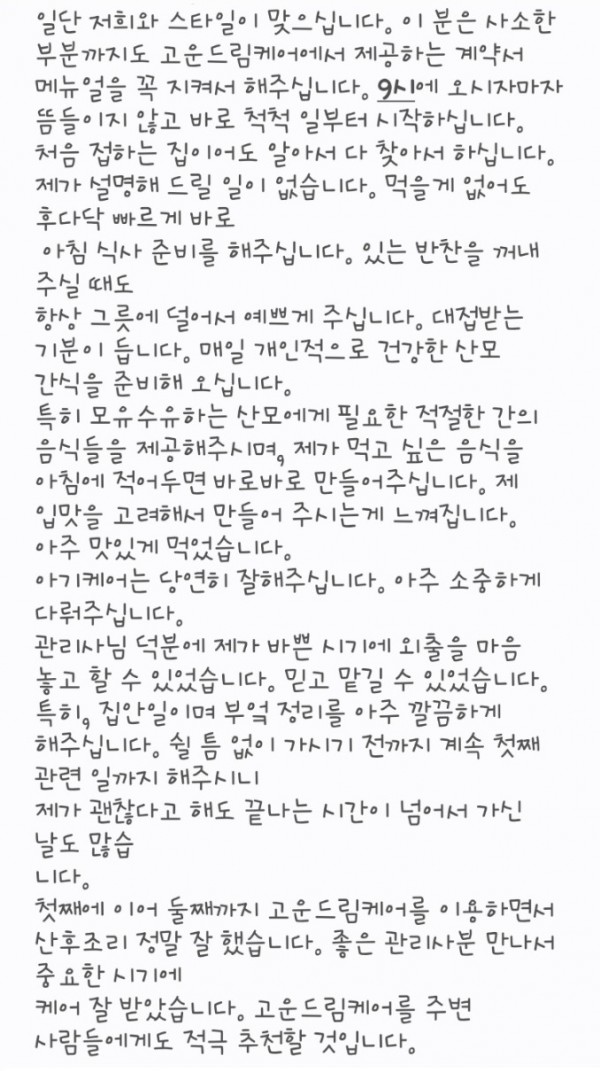 일단 저희와 스타일이 맞으십니다. 이 분은 사소한
부분까지도 고운드림케어에서 제공하는 계약서
메뉴얼을 꼭 지켜서 해주십니다. 9시에 오시자마자
뜸들이지 않고 바로 척척 일부터 시작하십니다.
처음 접하는 집이어도 알아서 다 찾아서 하십니다.
제가 설명해 드릴 일이 없습니다. 먹을게 없어도
후다닥 빠르게 바로
아침 식사 준비를 해주십니다. 있는 반찬을 꺼내
주실 때도
항상 그릇에 덜어서 예쁘게 주십니다. 대접받는
기분이 듭니다. 매일 개인적으로 건강한 산모
간식을 준비해 오십니다.
특히 모유수유하는 산모에게 필요한 적절한 간의
음식들을 제공해주시며, 제가 먹고 싶은 음식을
아침에 적어두면 바로바로 만들어주십니다. 제
입맛을 고려해서 만들어 주시는게 느껴집니다.
아주 맛있게 먹었습니다.
아기케어는 당연히 잘해주십니다. 아주 소중하게
다뤄주십니다.
관리사님 덕분에 제가 바쁜 시기에 외출을 마음
놓고 할 수 있었습니다. 믿고 맡길 수 있었습니다.
특히, 집안일이며 부엌 정리를 아주 깔끔하게
해주십니다. 쉴 틈 없이 가시기 전까지 계속 첫째
관련 일까지 해주시니
제가 괜찮다고 해도 끝나는 시간이 넘어서 가신
날도 많습
니다.
첫째에 이어 둘째까지 고운드림케어를 이용하면서
산후조리 정말 잘 했습니다. 좋은 관리사분 만나서
중요한 시기에
케어 잘 받았습니다. 고운드림케어를 주변
사람들에게도 적극 추천할 것입니다.